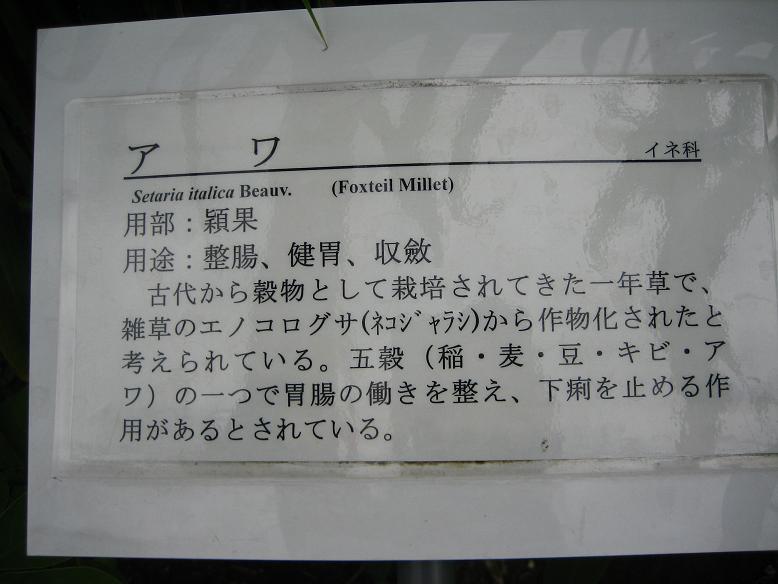 ア　ワ　イネ科
Setaria italica Beauv.　(Foxteil Millet)
用部：穎果
用途：整腸、健胃、収斂
　古代から穀物として栽培されてきた一年草で、
雑草のエノコログサ(ﾈｺｼﾞｬﾗｼ)から作物化されたと
考えられている。五穀（稲・麦・豆・キビ・ア
ワ）の一つで胃腸の働きを整え、下痢を止める作
用があるとされている。